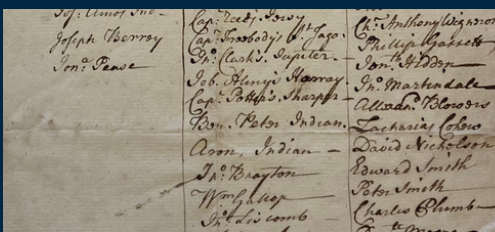 Jos: Amos Ind-
Joseph Berrey
Jonª Pease
Cap: Jewy
Cap: Freebody's St Jago.
Jnº Clark's Jupiter -
Job. Almy's Harray
Cap: Potter's Sharper -
Ben. Peter Indian.
Aron, Indian -
Jnº Brayton
Wm Gallop
Jnº Liscomb
Anthony
Phillip Garrett
Jonth Hedden
Jnº Martindale
Allexdr
Zacharias
David Nicholson
Edward Smith
Peter Smith
Charles Plumb -